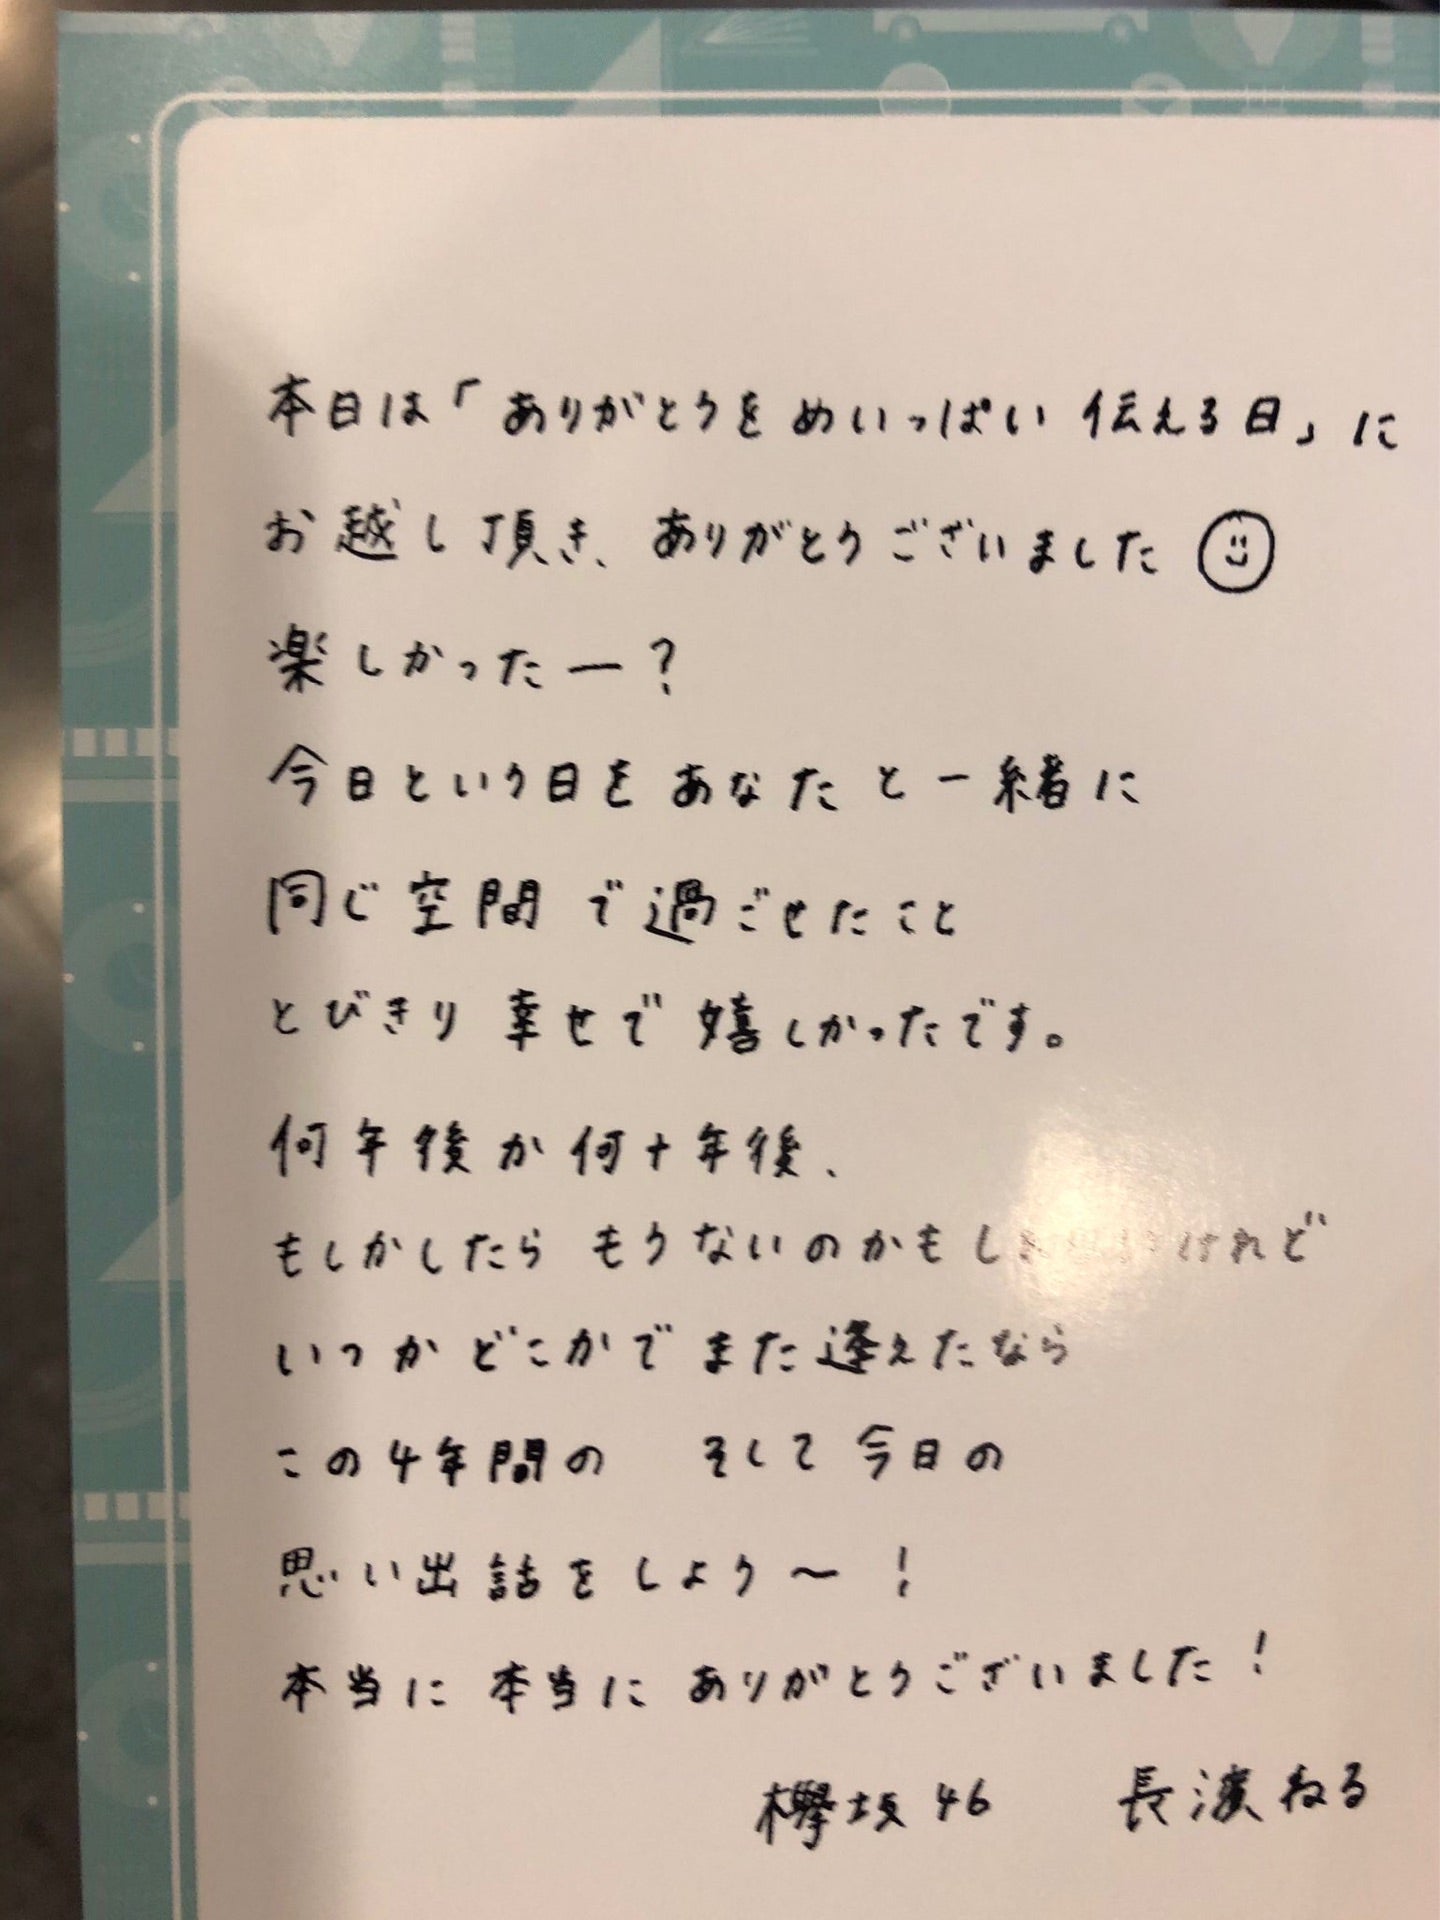 本日は「ありがとうをめいっぱい伝える日」に
お越し頂き、ありがとうございました
楽しかったー？
今日という日をあなたと一緒に
同じ空間で過ごせたこと
とびきり幸せで嬉しかったです。
何年後か何十年後、
もしかしたらもうないのかもし けれど
いつかどこかでまた逢えたなら
この4年間の そして今日の
思い出話をしよう〜！
本当に本当にありがとうございました！
欅坂46 長濱ねる